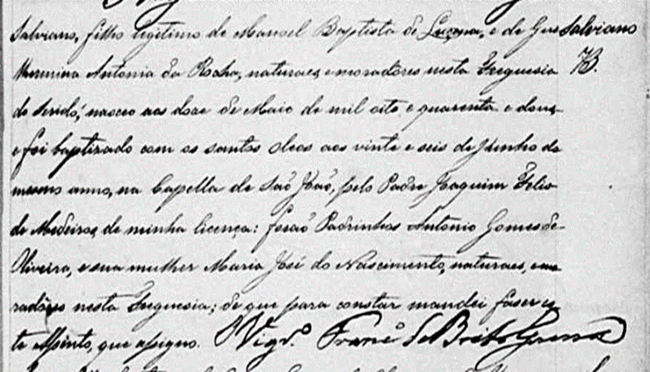 Salviano, filho legitimo de Manoel Baptista de Lucena, e de Gue Salviano
rmina Antonia da Rocha, naturaes, e moradores nesta Freguesia B.
do Seridó, nasceo aos doze de Maio de mil oito e quarenta e dous
e foi baptizado com os santos oleos aos vinte e seis de Junho do
mesmo anno, na Capella de São João, pelo Padre Joaquim Felis
de Medeiros, de minha licença: forão Padrinhos Antonio Gomes de
Oliveira, e sua mulher Maria José do Nascimento, naturaes, e mo
radores nesta Freguesia; de que para constar mandei faser es
te Assento, que assigno. O Vigr.º Franc.º de Brito Guerra